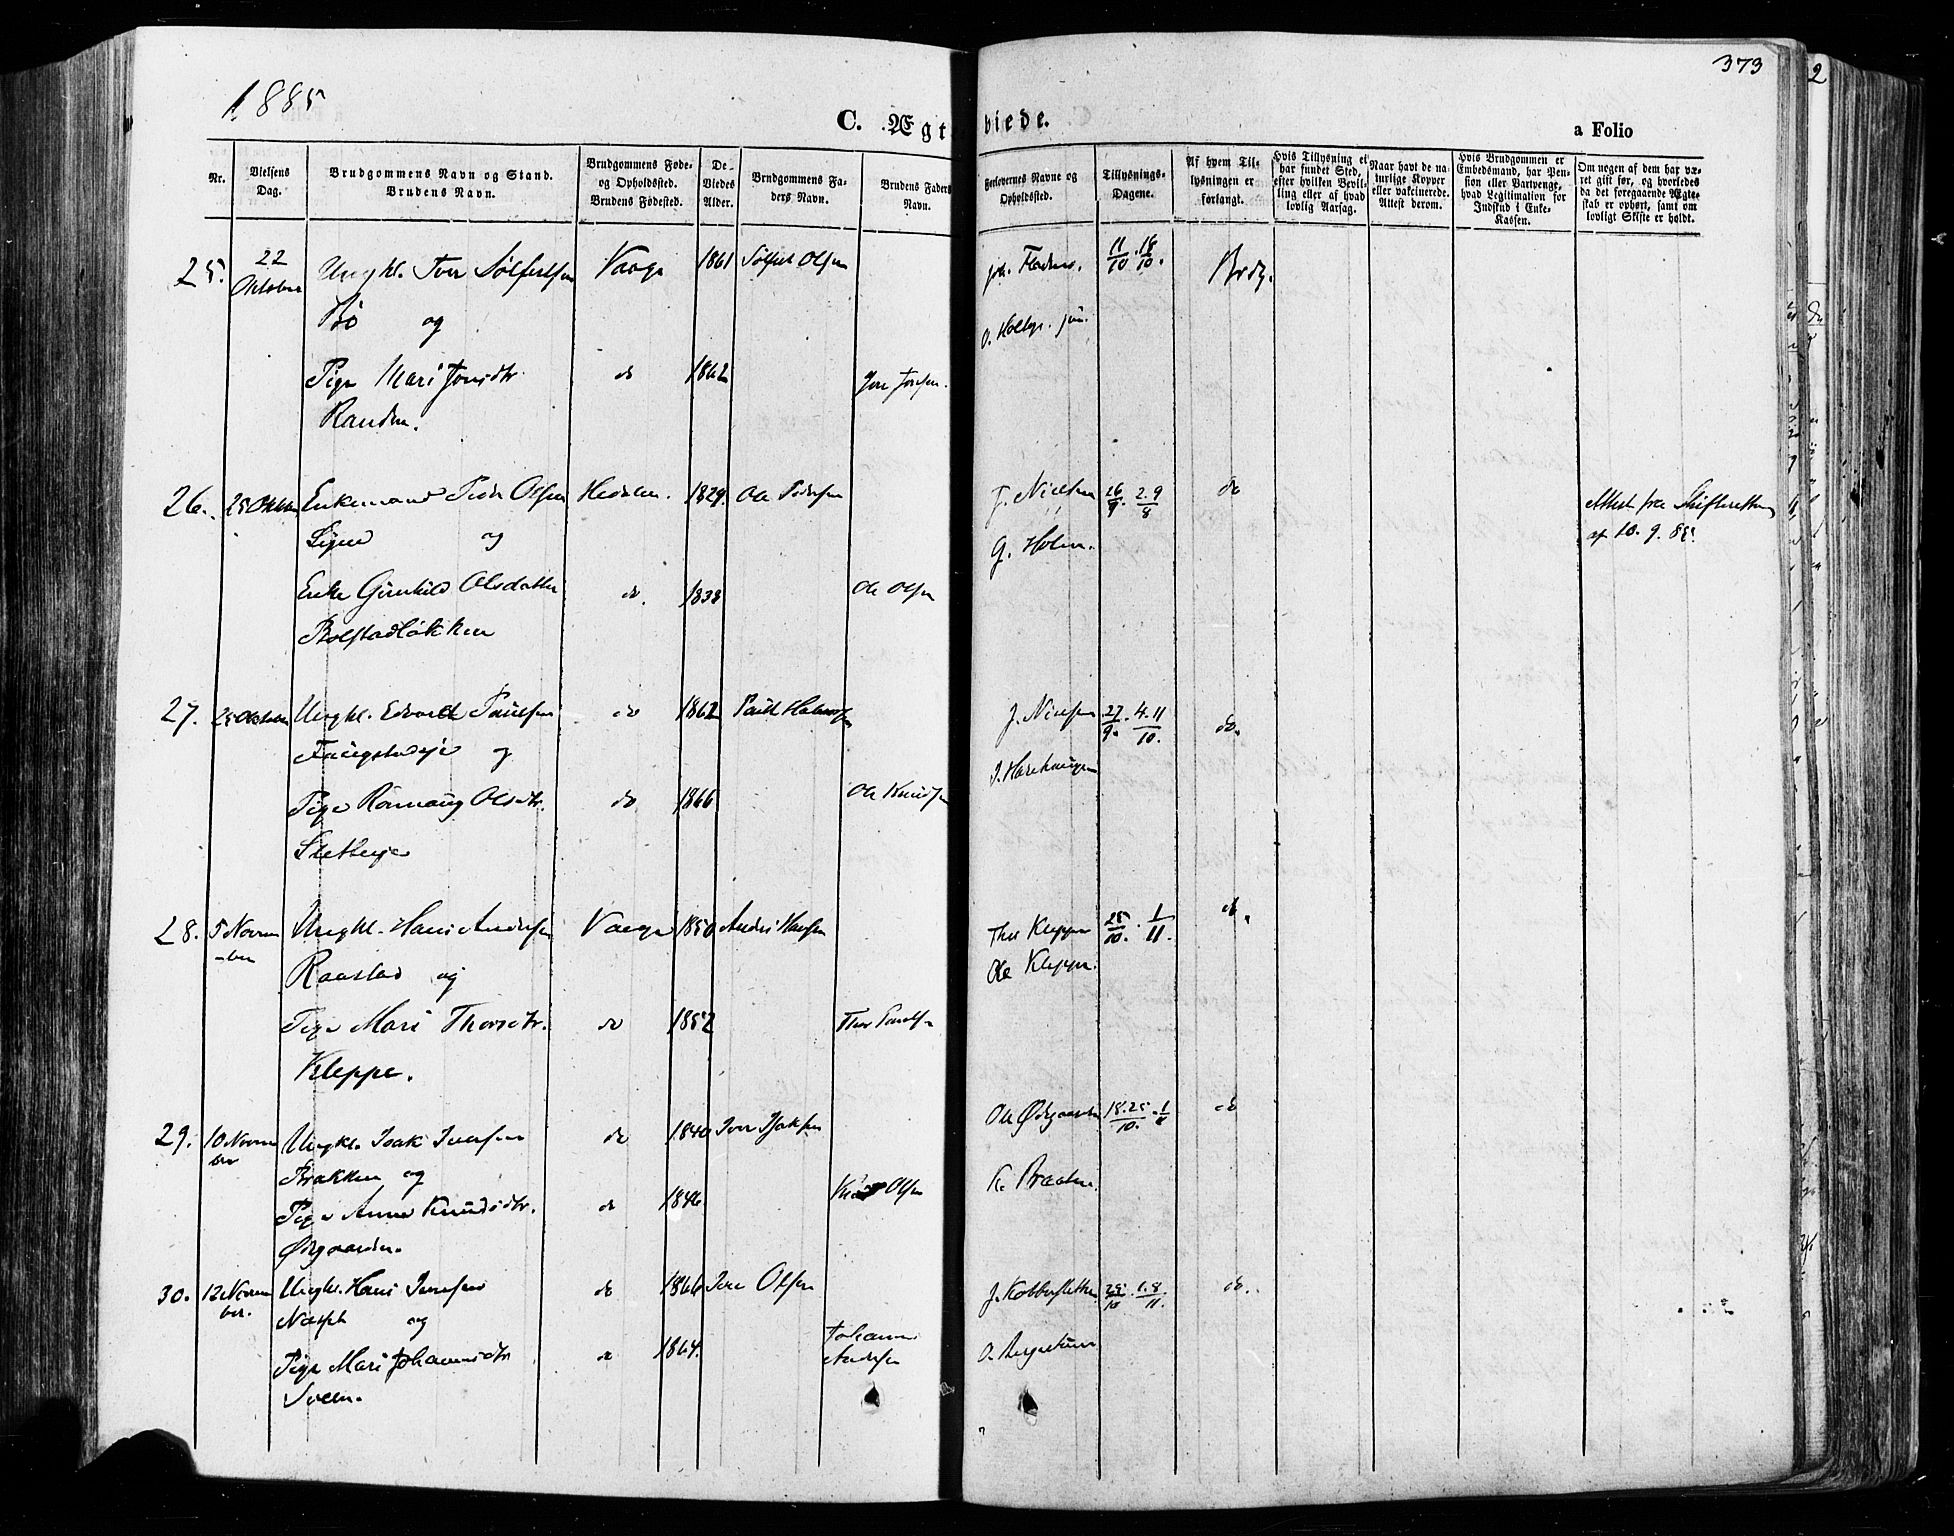 1885
373
C. Ægteviede.
a Folio
Nr.
Vielsens Dag.
Brudgommens Navn og Stand. Brudens Navn.
Brudgommens Føde- og Opholdssted. Brudens Fødested.
De Viedes Alder.
Brudgommens Faders Navn.
Brudens Faders Navn.
Forlovernes Navne og Opholdssted.
Tillysnings-Dagene.
Af hvem Tillysningen er forlangt.
Hvis Tillysning ei har fundet Sted, efter hvilken Bevilling eller af hvad lovlig Aarsag.
Naar havt de naturlige Kopper eller vakcinerede. Attest derom.
Hvis Brudgommen er Embedsmand, har Pension eller Vartpenge, hvad Legitimation for Indskud i Enke-Kassen.
Om nogen af dem har været gift før, og hvorledes da det foregaaende Ægteskab er ophørt, samt om lovligt Skifte er holdt.
25. 22 Oktober Ungkl. Iver Sølfestsen Vaage 1861 Sølfest Olsen
11/10. 18/10. Brdg.
Bø og
O. Holbø. jun.
Pige Mari Jonsdtr. do 1862 Jon Jonsen.
Randen.
26. 25 Oktober Enkemand Peder Olsen Hedalen. 1829. Ole Pedersen J. Nielsen 26/9. 2.9/8 do Attest fra Skifteretten
og G. Holm. af 10. 9. 85.
Enke Gunhild Olsdatter do. 1838 Ole Olsen
Bolstadløkken
27. 25 Oktober Ungkl. Edvard Paulsen do 1862 J. Nielsen 27/9. 4.11/10. do.
og
Pige Rønnaug Olsdtr. do 1866 Ole Knudsen
28. 5 November Ungkl. Hans Andersen Vaage 1850 Anders Hansen Thor Kleppe 25/10. 1/11. do.
Raastad og Ole Kleppe.
Pige Mari Thorsdtr. do 1852 Thor Paulsen
Kleppe.
29. 10 November Ungkl. Isak Iversen do 1840 Iver Isaksen Ole Ødegaarden 18.25/10. 1/11 do
Brakken og K. Braaten.
Pige Anne Knudsdtr. do 1846. Knud Olsen
Ødegaarden.
30. 12 November. Ungkl. Hans Iversen do 1866 Iver Olsen 25/10 1.8/11. do.
og
Pige Mari Johannesdtr do 1864. Johannes Andersen
Sveen.